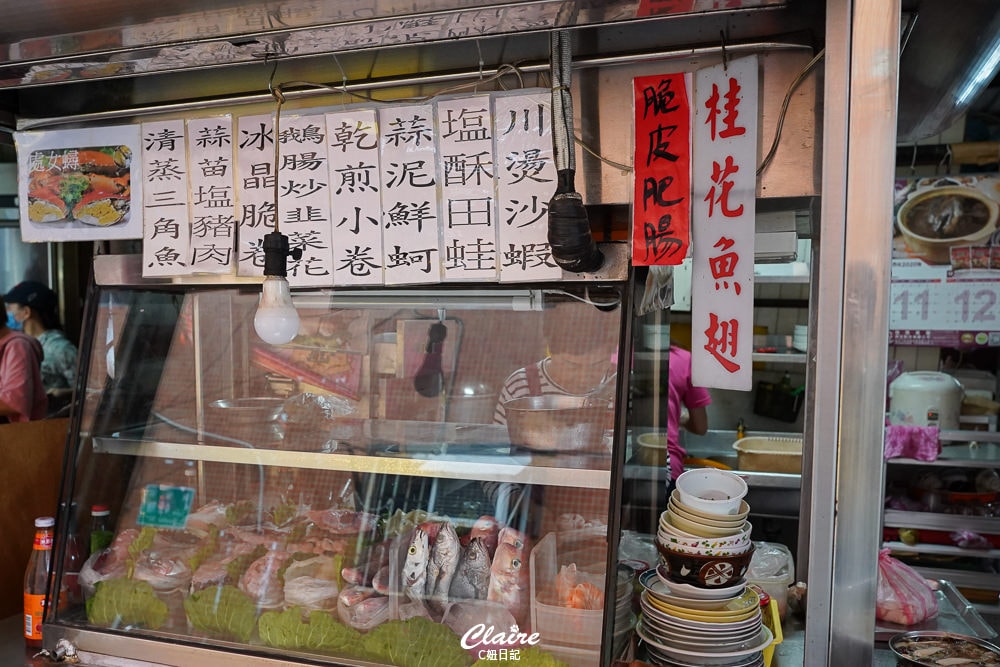 處女蟳
清蒸三角魚
蒜苗塩豬肉
冰晶脆
鵝腸炒韭菜花
乾煎小卷
蒜泥鮮蚵
塩酥田蛙
川燙沙蝦
脆皮肥腸
桂花魚翅
11 12
Claire
C妞日記